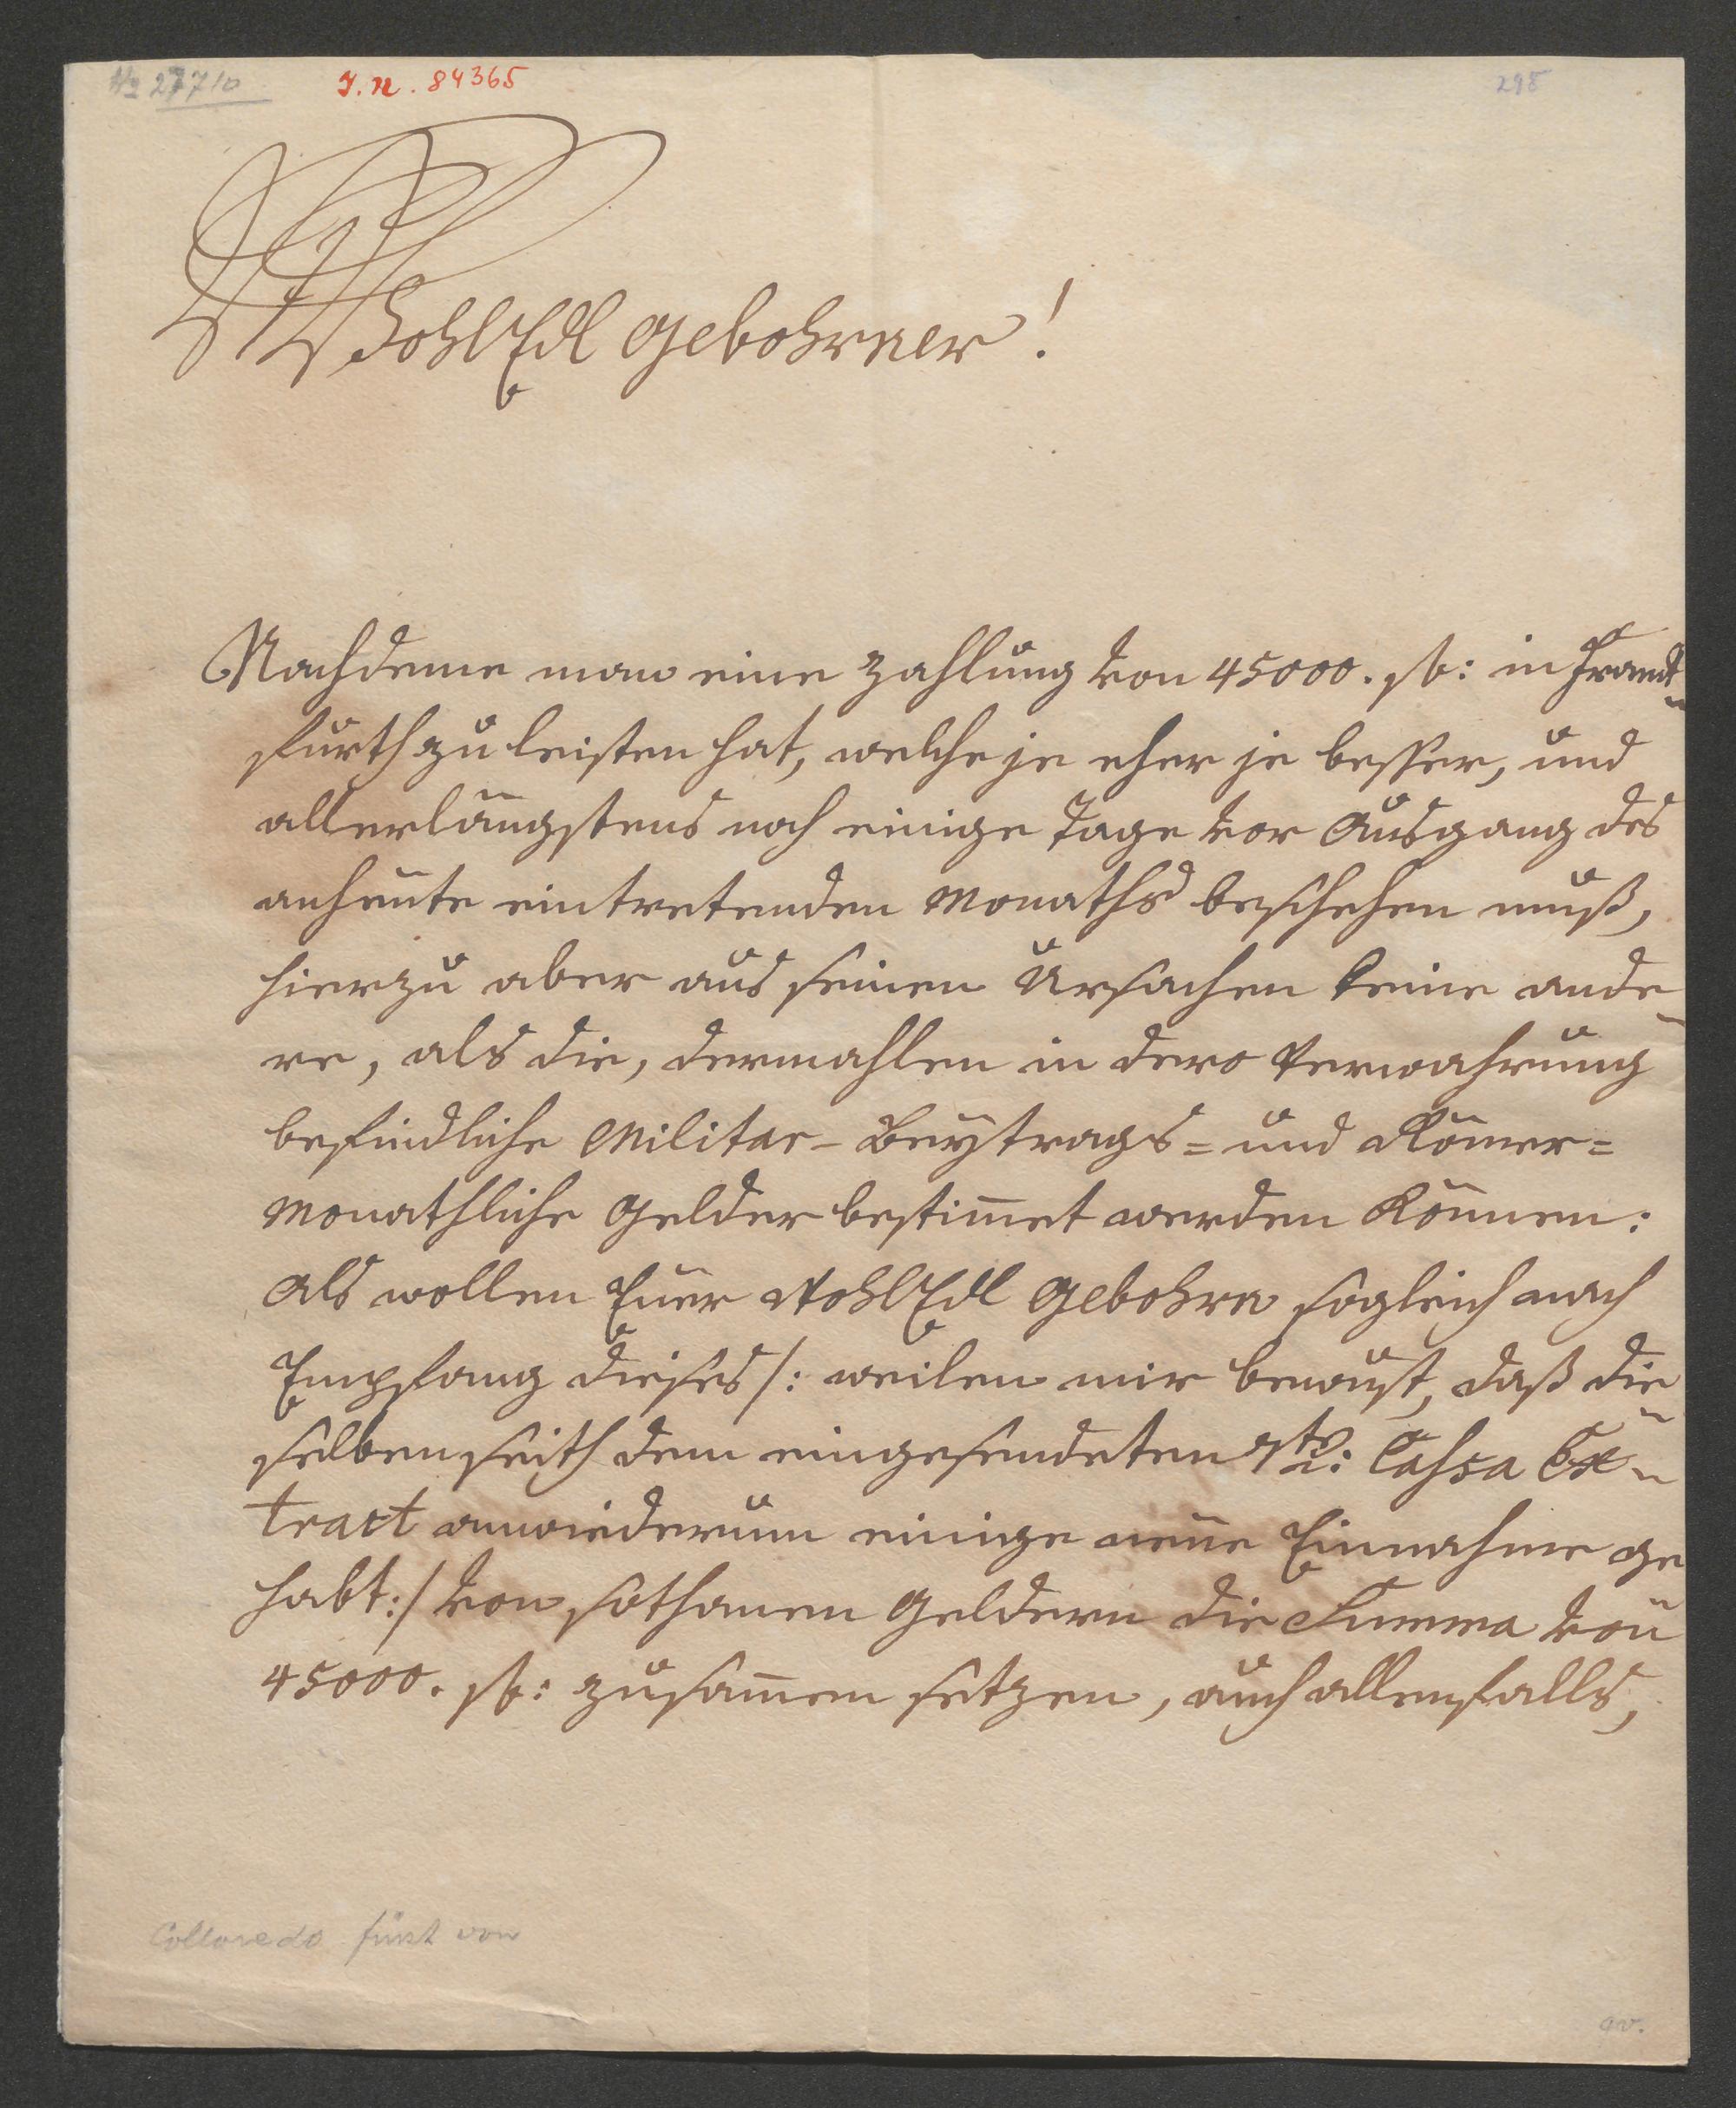 No 27710 I. N. 84365 298
WohlEdlgebohrner!
Nachdeme man eine Zahlung von 45000. fl: in Franck-
furth zu leisten hat, welche je eher je besser, und
allerlängstens noch einige Tage vor Ausgang des
anheute eintretenden Monaths beschehen muß,
hierzu aber aus seinen Ursachen keine ande-
re, als die, dermahlen in dero Verwahrung
befindliche Militar-Beÿtrags- und Römer-
Monathliche Gelder bestim̄et werden können:
Als wollen Euer WohlEdlgebohrn sogleich nach
Empfang dieses /: weilen mir bewust, daß die-
selben seith dem eingesendeten Cassa Ex-
tract anwiederum einige neue Einnahme ge
habt :/ von sothanen Geldern die Summa von
45000. fl: zusam̄en setzen, auch allenfalls,
Colloredo fürst von